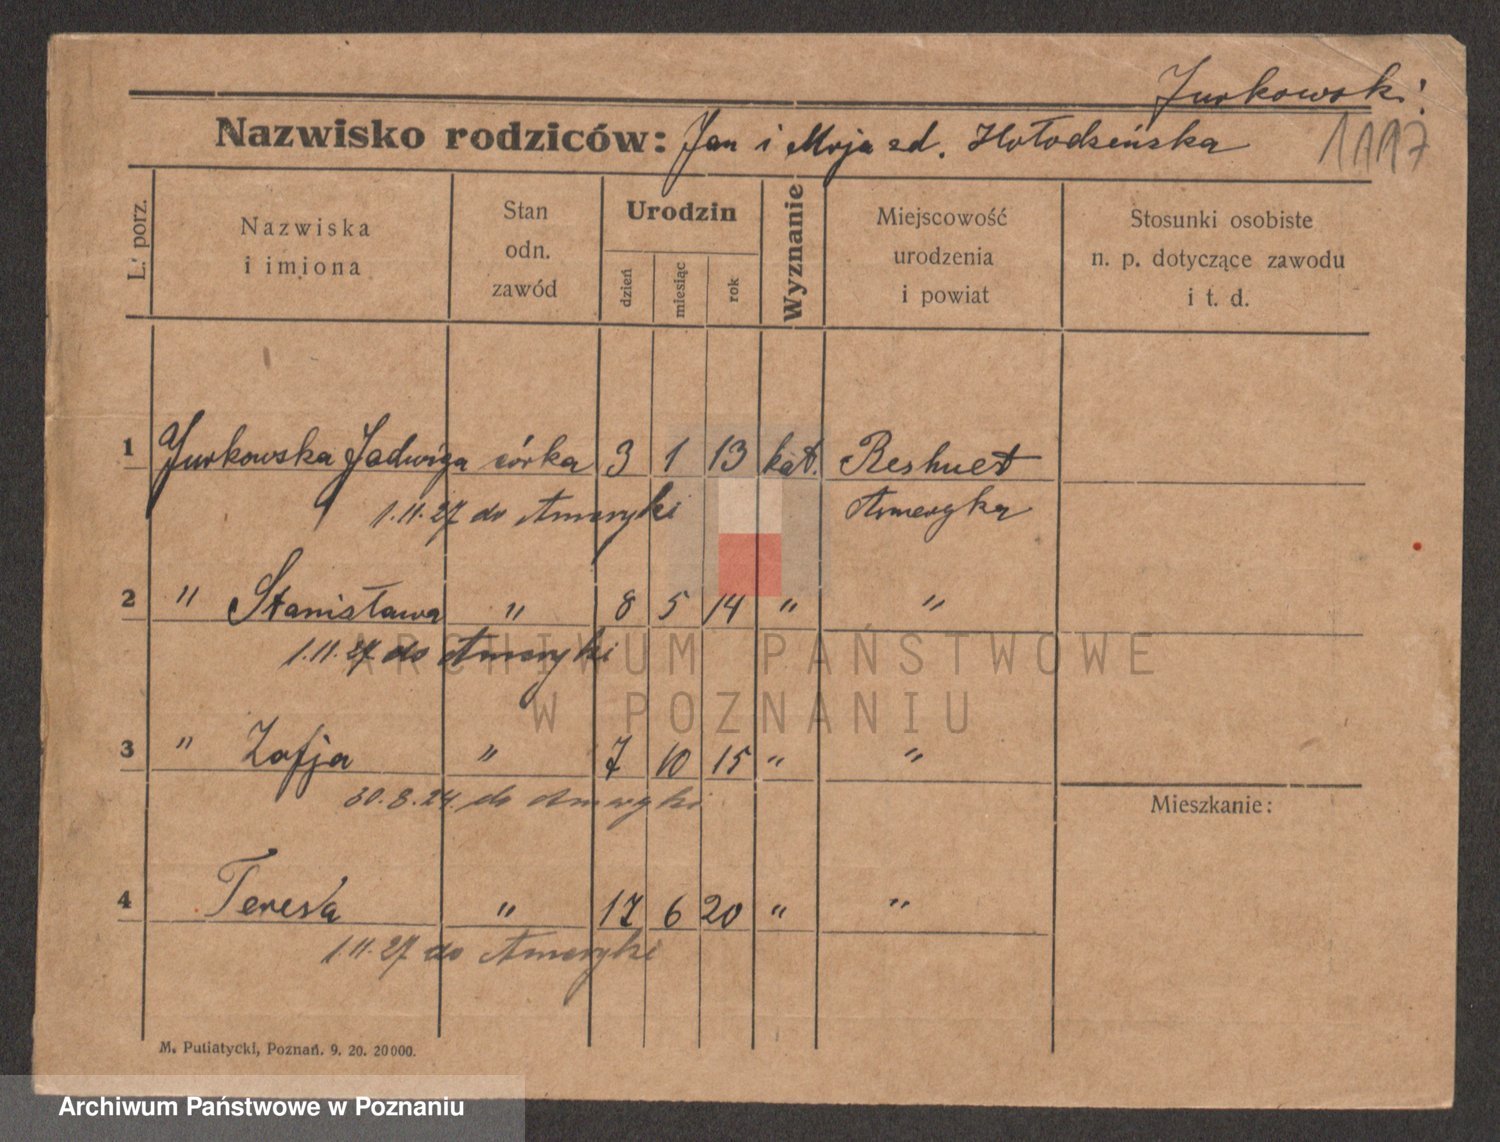 Jurkowski
Nazwisko rodziców: Jan i Mrja zd. Hołodzeńska 1117
L. porz. Nazwiska i imiona Stan odn. zawód Urodzin dzień miesiąc rok Wyznanie Miejscowość urodzenia i powiat Stosunki osobiste n. p. dotyczące zawodu i t. d.
1 Jurkowska Jadwiga córka 3 1 13 kat. Reshuet
1.11.27 do Ameryki Ameryka
2 " Stanisława " 8 5 14 " "
1.11.27 do Ameryki
ARCHIWUM PAŃSTWOWE
W POZNANIU
3 " Zofja " 7 10 15 " "
30.8.24 do Ameryki
Mieszkanie:
4 Teresa " 17 6 20 " "
1.11.27 do Ameryki
M. Putiatycki, Poznań. 9. 20. 20000.
Archiwum Państwowe w Poznaniu